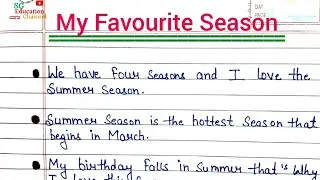 SC
Education
Channel
My Favourite Season
DAY
PAGE
We have four seasons and I love the
Summer Season.
Summer Season is the hottest Season that
begins in March.
My birthday falls in Summer that's Why
I love this